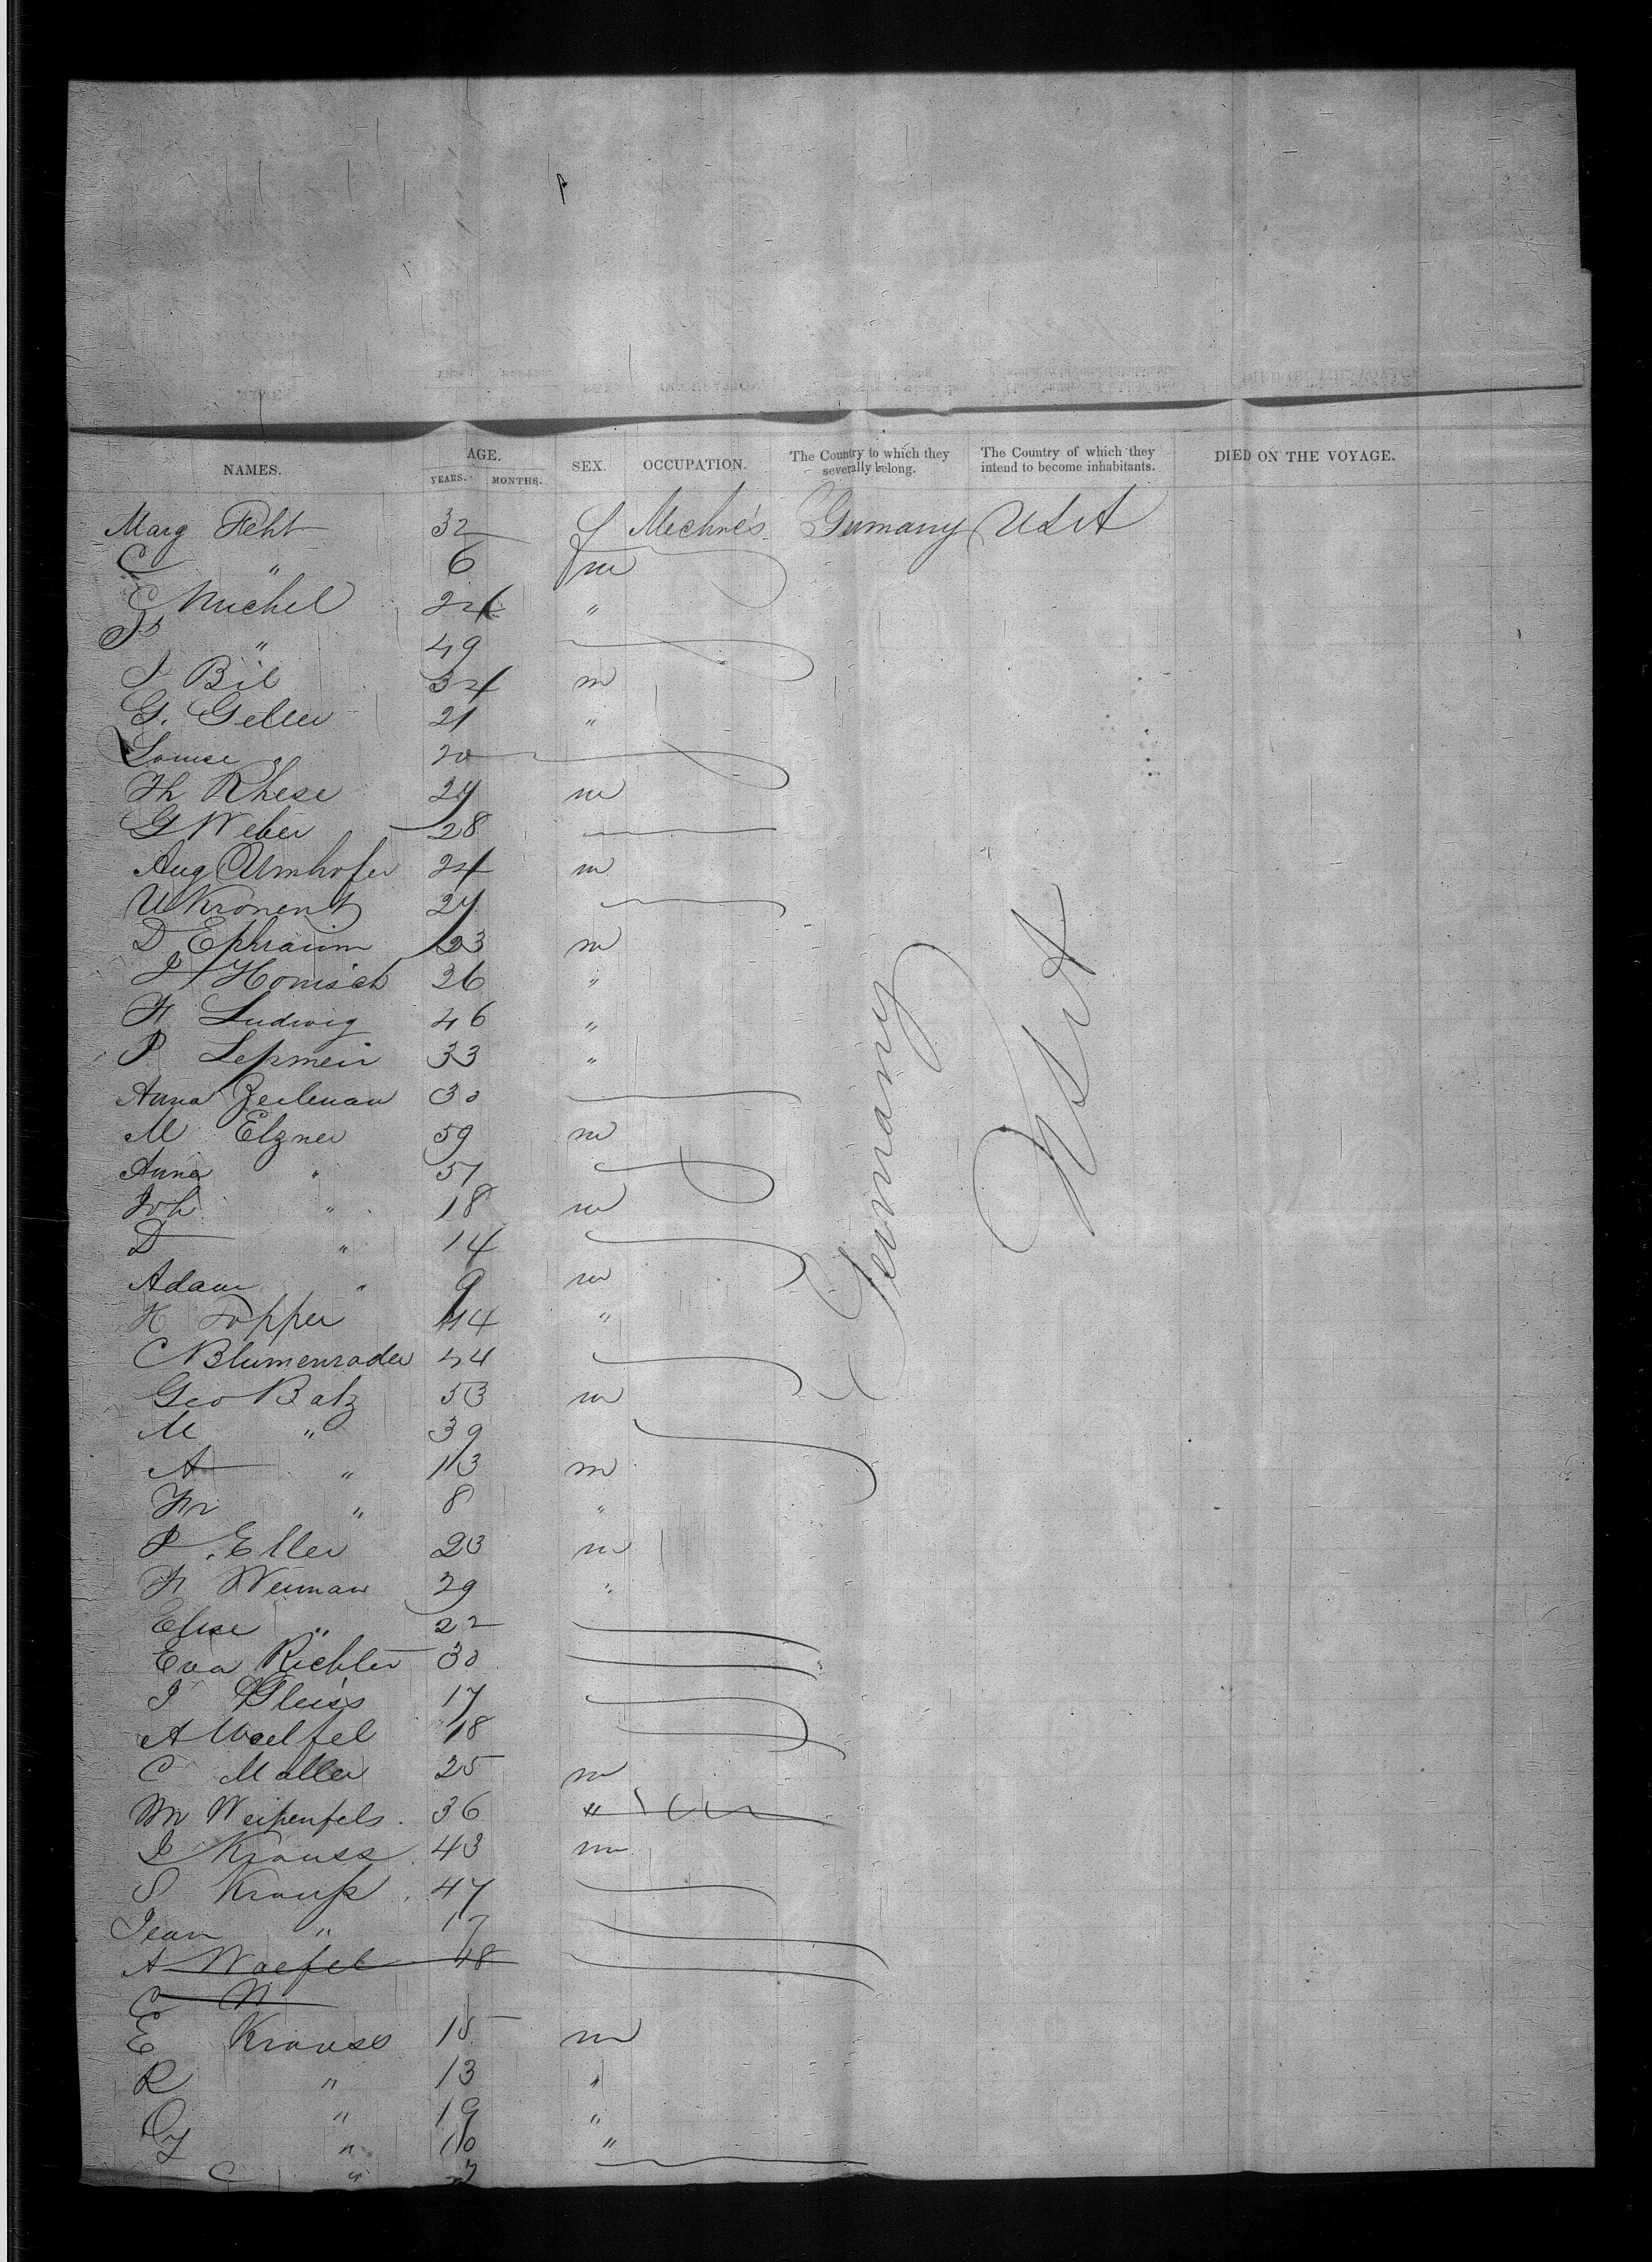 NAMES. AGE. YEARS. MONTHS. SEX. OCCUPATION. The Country to which they severally belong. The Country of which they intend to become inhabitants. DIED ON THE VOYAGE.
Marg Fehl 32 f Mechnc's Germany USA
C " 6 m
C Michel 24 "
" 49
J Bil 34 m
G. Geller 21 "
Louise 20
Th Rhese 27 m
G Weber 28
Aug Umhofer 24 m
W Kronent 27
D Ephraim 23 m
J Honisch 26 "
Fr Ludwig 46 "
P Lepmeir 33 "
Anna Zeileman 30
M Elzner 59 m
Anna " 51
Joh " 18 m
D " 14
Adam " 9 m
H Topper 44 "
C Blumenrader 44
Geo Batz 53 m
M " 39
A " 13 m
Fr " 8 "
P. Eller 23 m
Fr Weiman 29 "
Elise " 22
Eva Richter 30
J Gleiss 17
A Woelfel 18
C Muller 25 m
Wm Weissenfels. 36 "
J Krauss 43 m
S Krauss 47
Jean " 17
A Woefel 18
C
E Krauss 15 m
R " 13 "
" 19 "
" 10 "
C "
Germany
USA